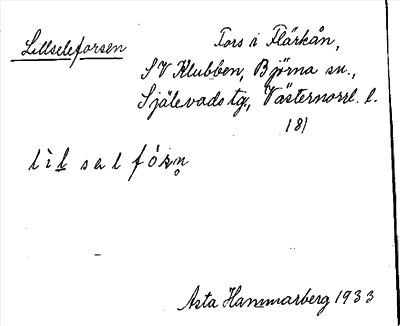 Lillseleforsen
Fors i Flärkån,
SV Klubben, Björna sn.,
Själevads tg., Västernorrl. l.
181
lìl sel fórsn̥
Asta Hammarberg 1933